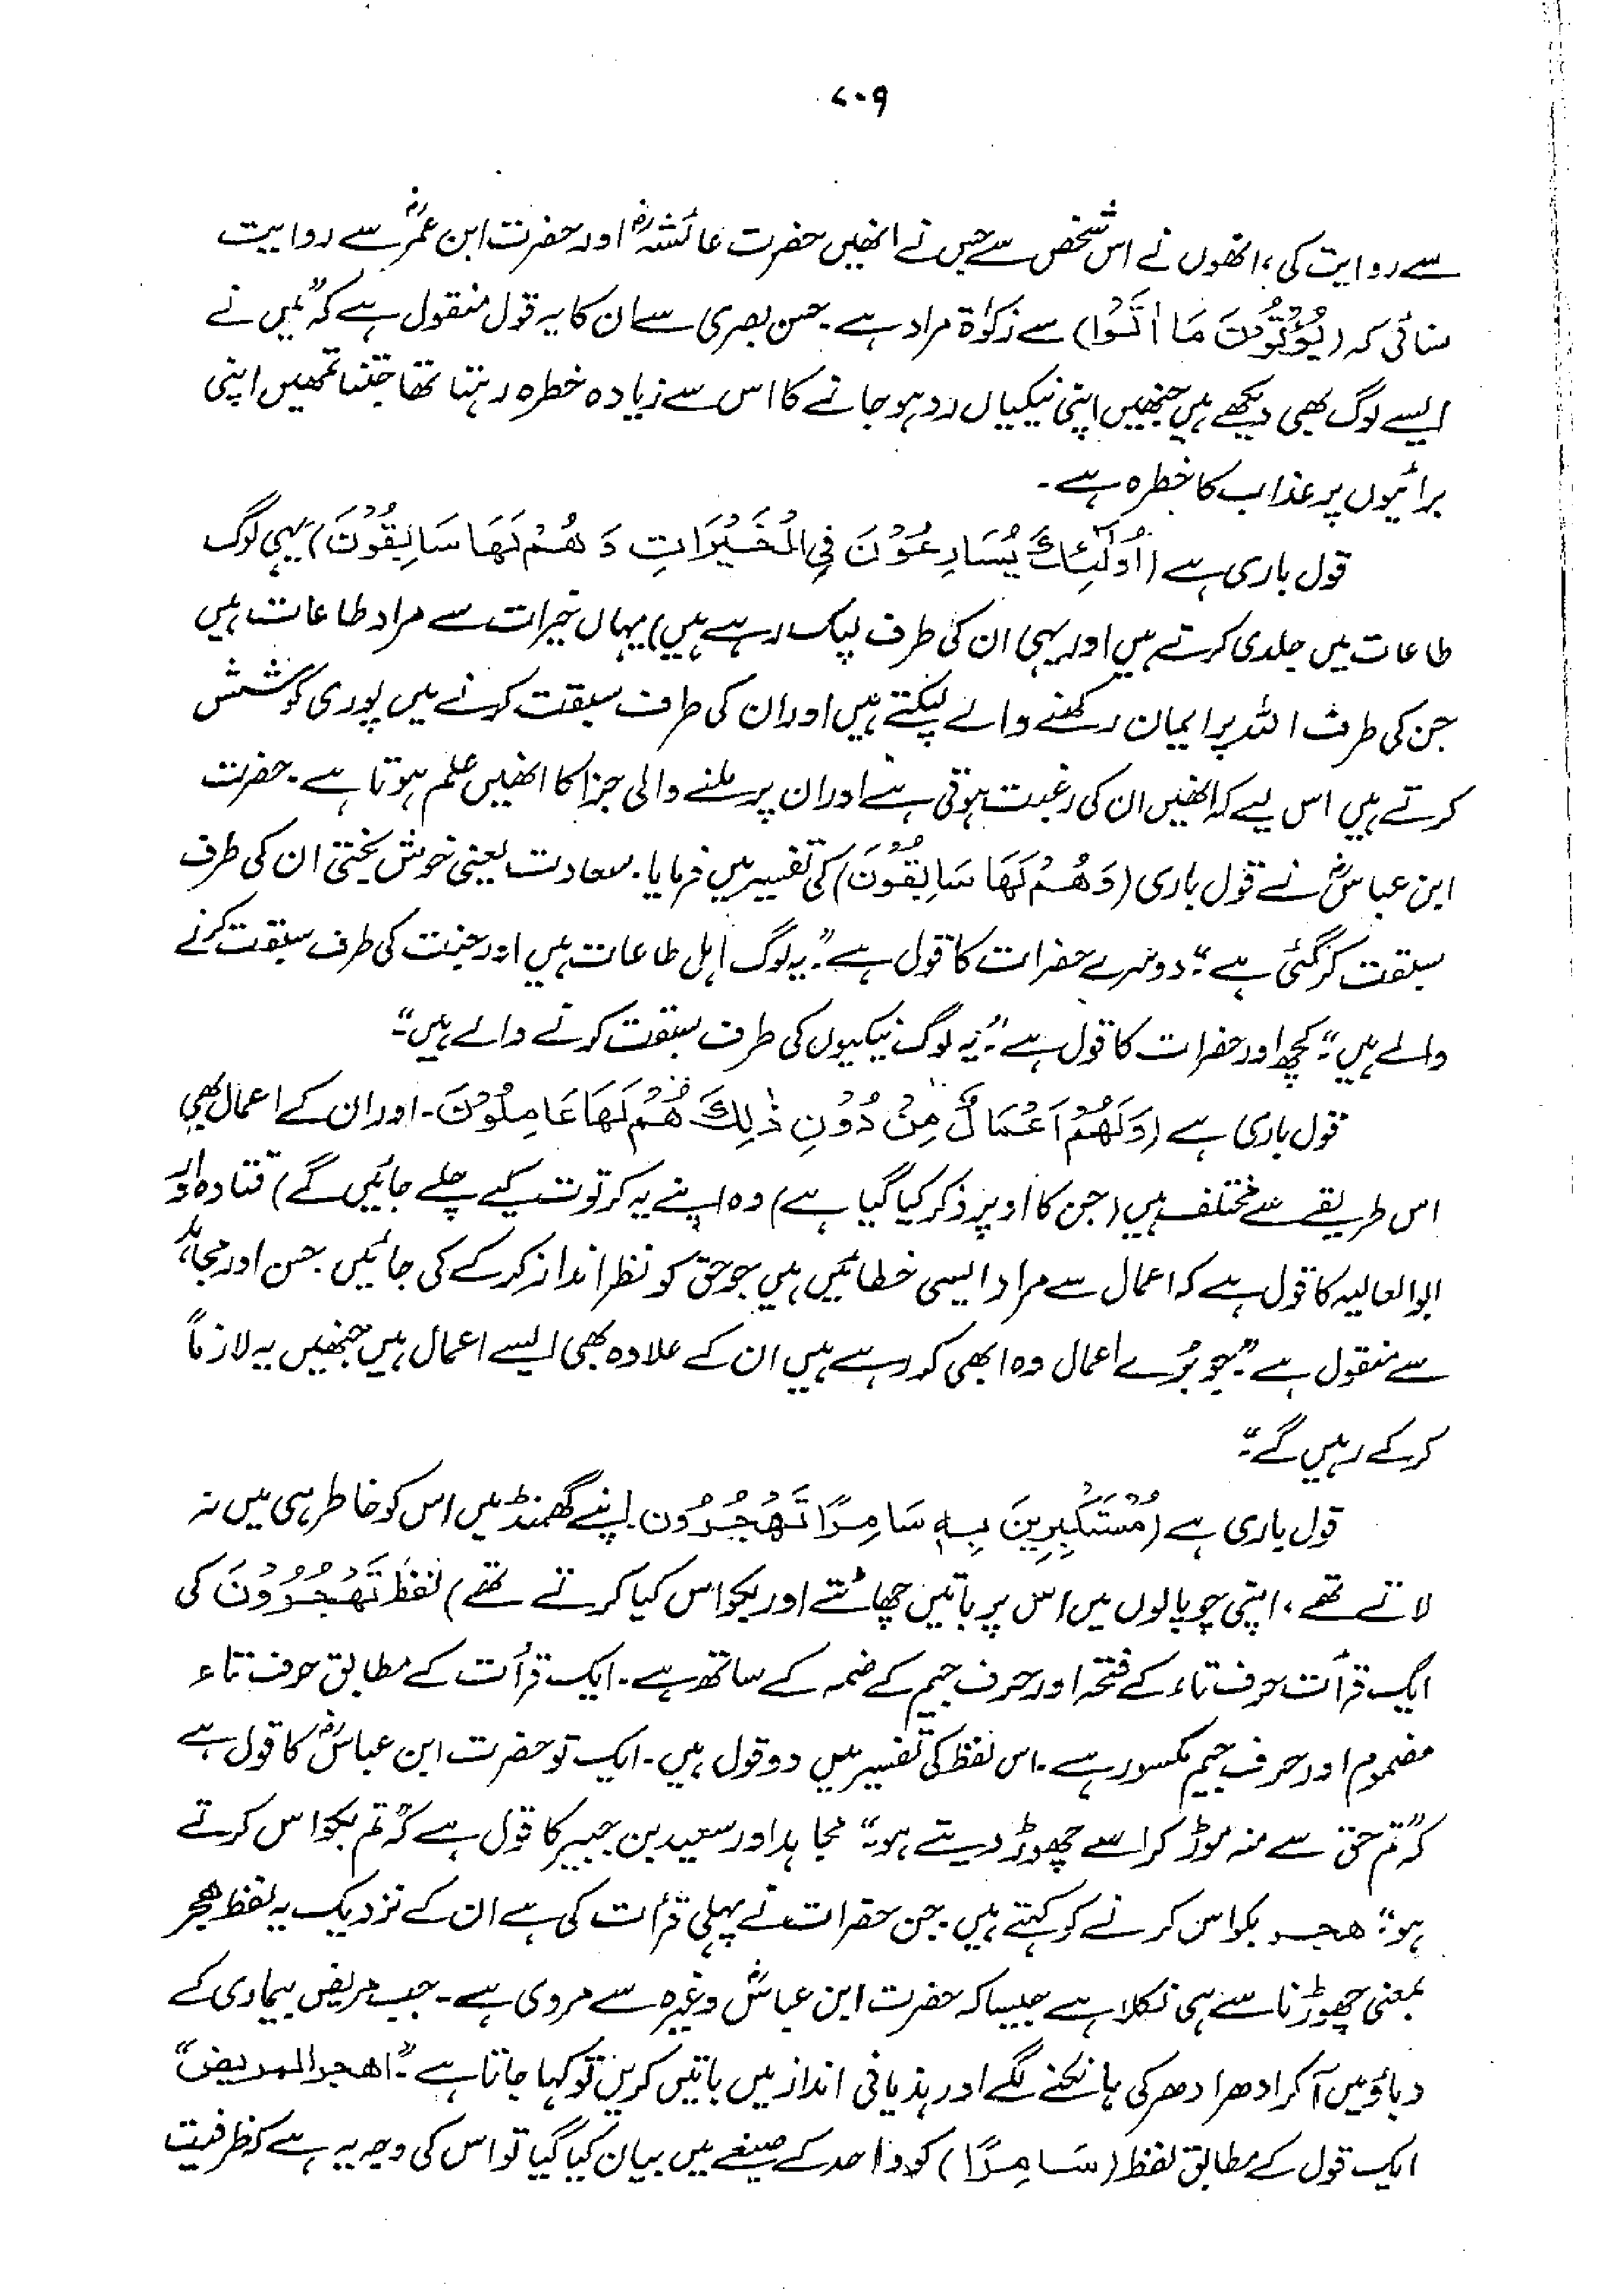 ۷۰۹
سے روایت کی، انھوں نے اس شخص سے جس نے انھیں حضرت عائشہؓ اور حضرت ابن عمرؓ سے روایت
سنائی کہ (یُؤْتُوْنَ مَا اٰتَوْا) سے زکوٰۃ مراد ہے۔ حسن بصری سے ان کا یہ قول منقول ہے کہ "میں نے
ایسے لوگ بھی دیکھے ہیں جنھیں اپنی نیکیاں رد ہو جانے کا اس سے زیادہ خطرہ رہتا تھا جتنا تمھیں اپنی
برائیوں پر عذاب کا خطرہ ہے۔
قول باری ہے (اُولٰٓئِكَ یُسَارِعُوْنَ فِی الْخَیْرَاتِ وَ هُمْ لَهَا سَابِقُوْنَ) یہی لوگ
طاعات میں جلدی کرتے ہیں اور یہی ان کی طرف لپک رہے ہیں) یہاں خیرات سے مراد طاعات ہیں
جن کی طرف اللہ پر ایمان رکھنے والے لپکتے ہیں اور ان کی طرف سبقت کرنے میں پوری کوشش
کرتے ہیں اس لیے کہ انھیں ان کی رغبت ہوتی ہے اور ان پر ملنے والی جزا کا انھیں علم ہوتا ہے۔ حضرت
ابن عباسؓ نے قول باری (وَ هُمْ لَهَا سَابِقُوْنَ) کی تفسیر میں فرمایا۔ سعادت یعنی خوش بختی ان کی طرف
سبقت کر گئی ہے"۔ دوسرے حضرات کا قول ہے"۔ یہ لوگ اہل طاعات ہیں اور جنت کی طرف سبقت کرنے
والے ہیں"۔ کچھ اور حضرات کا قول ہے"۔ یہ لوگ نیکیوں کی طرف سبقت کرنے والے ہیں"۔
قول باری ہے (وَلَهُمْ اَعْمَالٌ مِنْ دُوْنِ ذٰلِكَ هُمْ لَهَا عَامِلُوْنَ۔ اور ان کے اعمال بھی
اس طریقے سے مختلف ہیں (جن کا اوپر ذکر کیا گیا ہے) وہ اپنے یہ کرتوت کیے چلے جائیں گے) قتادہ اور
ابوالعالیہ کا قول ہے کہ اعمال سے مراد ایسی خطائیں ہیں جو حق کو نظر انداز کر کے کی جائیں۔ حسن اور مجاہد
سے منقول ہے"۔ جو بُرے اعمال وہ ابھی کر رہے ہیں ان کے علاوہ بھی ایسے اعمال ہیں جنھیں یہ لازماً
کر کے رہیں گے"۔
قول باری ہے (مُسْتَكْبِرِینَ بِهٖ سَامِرًا تَهْجُرُوْن۔ اپنے گھمنڈ میں اس کو خاطر ہی میں نہ
لاتے تھے، اپنی چوپالوں میں اس پر باتیں چھانٹتے اور بکواس کیا کرتے تھے) لفظ تَهْجُرُوْنَ کی
ایک قرأت حرف تاء کے فتحہ اور حرف جیم کے ضمہ کے ساتھ ہے۔ ایک قرأت کے مطابق حرف تاء
مضموم اور حرف جیم مکسور ہے۔ اس لفظ کی تفسیر میں دو قول ہیں۔ ایک تو حضرت ابن عباسؓ کا قول ہے
کہ "تم حق سے منہ موڑ کر اسے چھوڑ دیتے ہو"۔ مجاہد اور سعید بن جبیر کا قول ہے کہ "تم بکواس کرتے
ہو"۔ هجر بکواس کرنے کو کہتے ہیں۔ جن حضرات نے پہلی قرأت کی ہے ان کے نزدیک یہ لفظ هجر
بمعنی چھوڑنا سے ہی نکلا ہے جیسا کہ حضرت ابن عباسؓ وغیرہ سے مروی ہے۔ جب مریض بیماری کے
دباؤ میں آ کر ادھر ادھر کی ہانکنے لگے اور ہذیانی انداز میں باتیں کریں تو کہا جاتا ہے"۔ اهجر المریض"
ایک قول کے مطابق لفظ (سَامِرًا) کو واحد کے صیغے میں بیان کیا گیا تو اس کی وجہ یہ ہے کہ ظرفیت